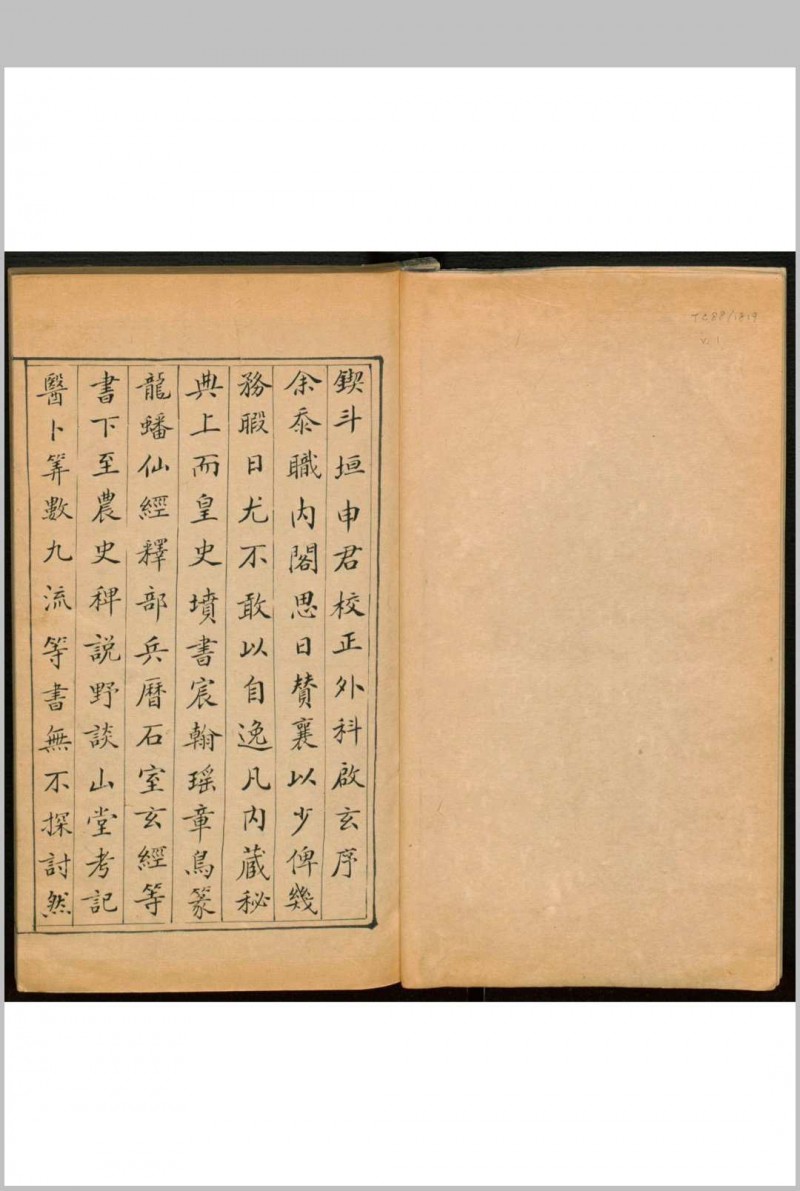 鍥斗垣申君校正外科啟玄序
余忝職內閣思日贊襄以少俾幾
務暇日尤不敢以自逸凡內藏秘
典上而皇史墳書宸翰瑤章鳥篆
龍蟠仙經釋部兵曆石室玄經等
書下至農史稗說野談山堂考記
醫卜筭數九流等書無不探討然
TC88/1819
v.1